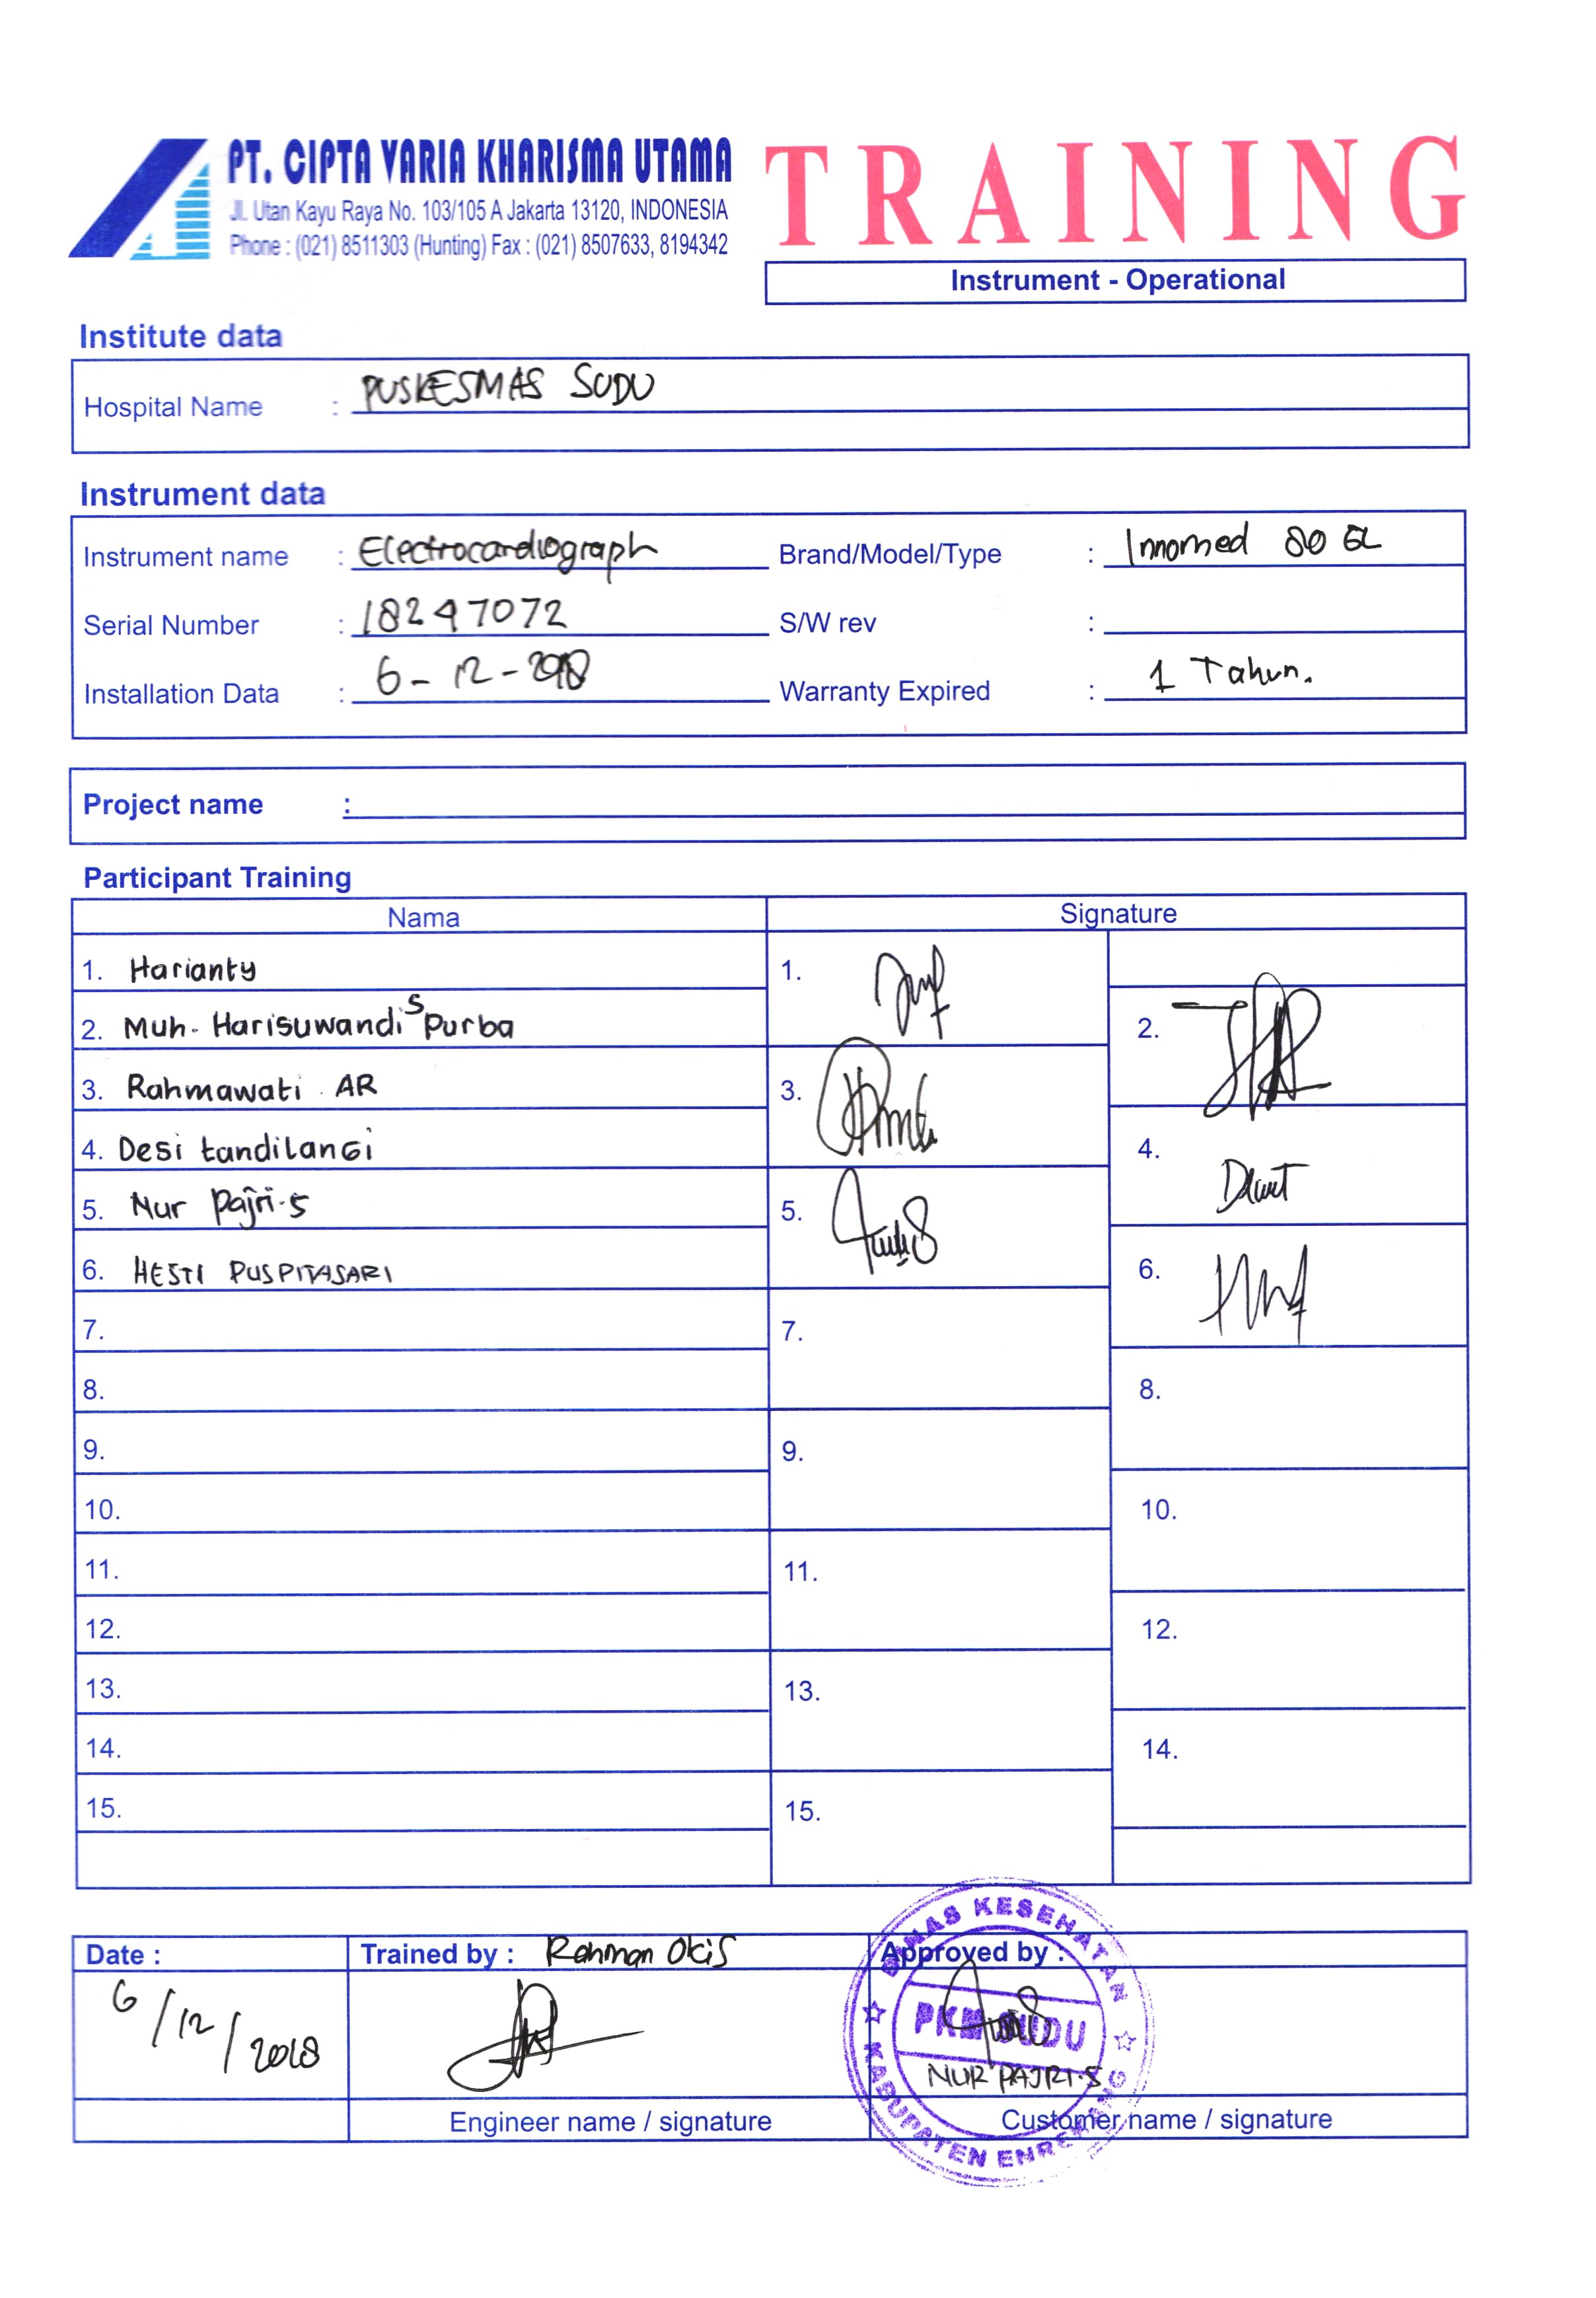 PT. CIPTA VARIA KHARISMA UTAMA
Jl. Utan Kayu Raya No. 103/105 A Jakarta 13120, INDONESIA
Phone : (021) 8511303 (Hunting) Fax : (021) 8507633, 8194342
TRAINING
Instrument - Operational
Institute data
Hospital Name : PUSKESMAS SUDU
Instrument data
Instrument name : Electrocardiograph Brand/Model/Type : Innomed 80
Serial Number : 18247072 S/W rev :
Installation Data : 6-12-2018 Warranty Expired : 1 Tahun.
Project name :
Participant Training
Nama Signature
1. Harianty 1.
2. Muh. Harisuwandi S Purba 2.
3. Rahmawati AR 3.
4. Desi tandilangi 4.
5. Nur Pajri.s 5.
6. HESTI PUSPITASARI 6.
7. 7.
8. 8.
9. 9.
10. 10.
11. 11.
12. 12.
13. 13.
14. 14.
15. 15.
Date : Trained by : Rahman Okis Approved by :
6/12/2018
DINAS KESEHATAN
PKM SUDU
KABUPATEN ENREKANG
NUR PAJRI.S
Engineer name / signature Customer name / signature